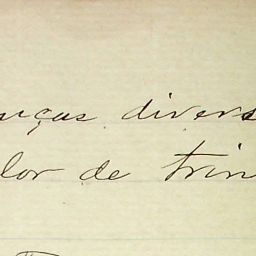 uças divers
lor de trin